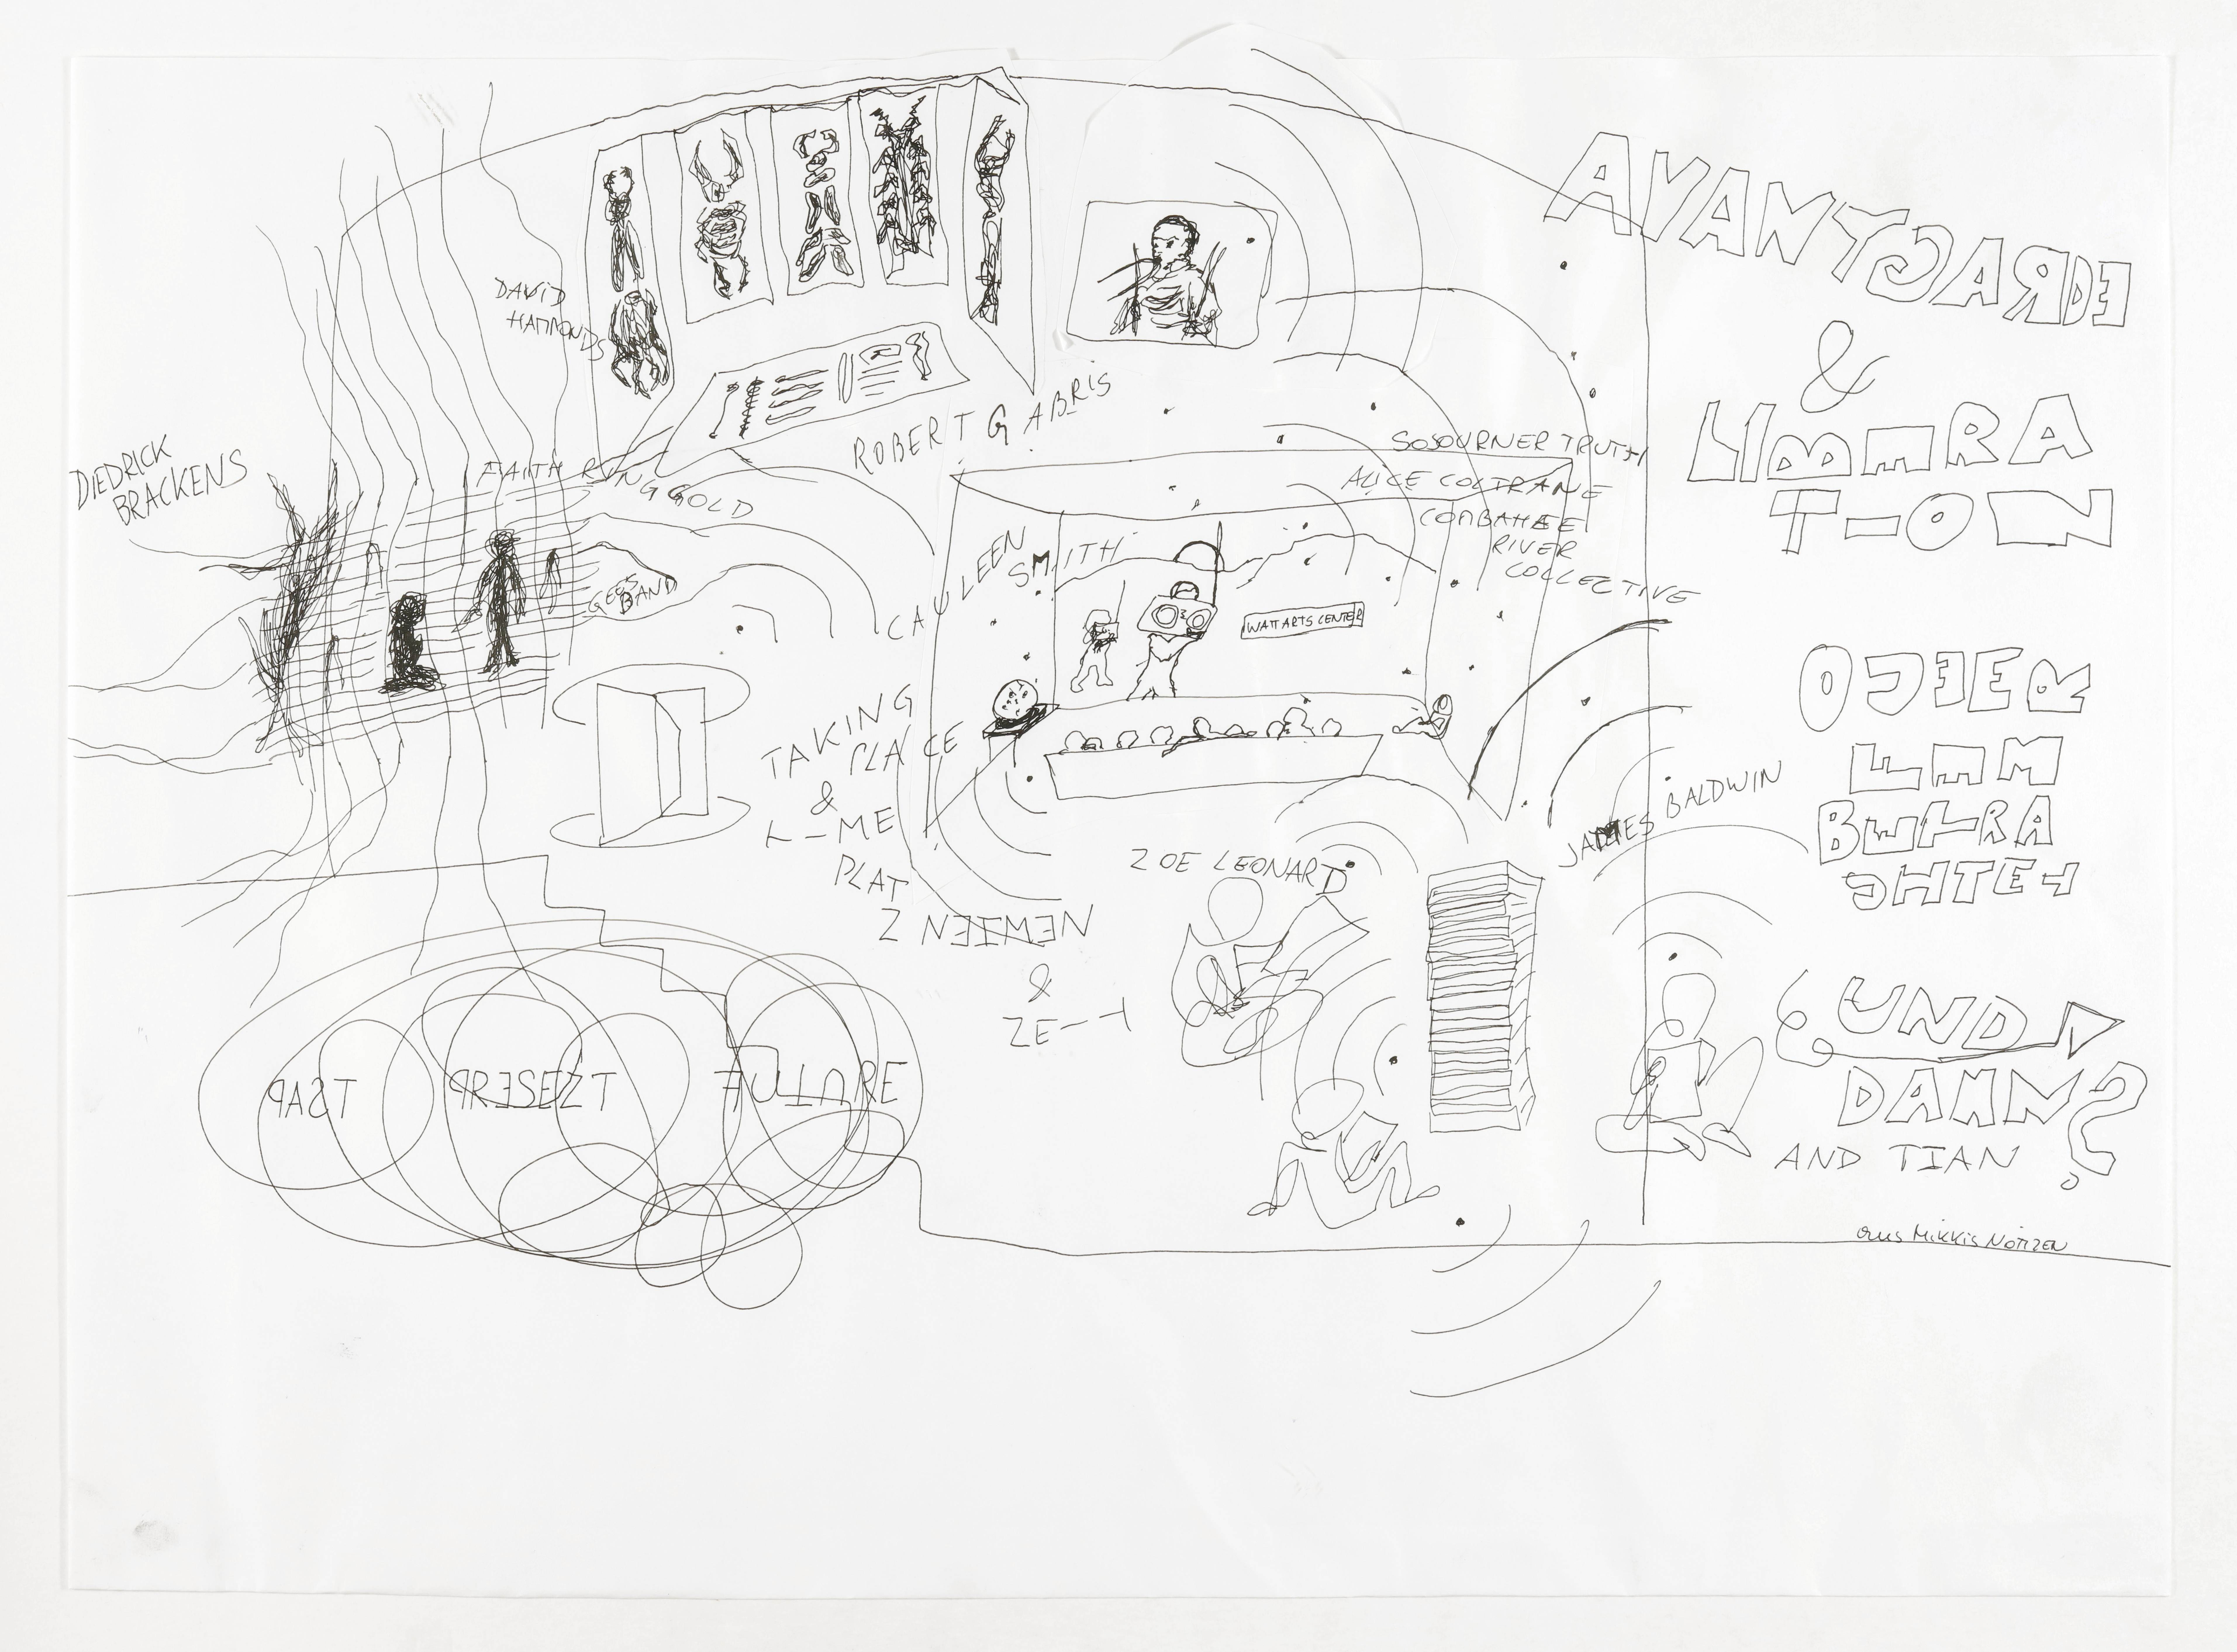 AVANTGARDE
&
LIBERA
TION
DAVID
HAMMONDS
ROBERT GABRIS
DIEDRICK
BRACKENS
FAITH RINGGOLD
SOJOURNER TRUTH
ALICE COLTRANE
COMBAHEE
RIVER
COLLECTIVE
CAULEEN
SMITH
GEES
BAND
WATT ARTS CENTER
ODER
EEM
BETRA
CHTET
TAKING
PLACE
&
TIME
PLAT
Z NEMIEN
&
ZEIT
JAMES BALDWIN
ZOE LEONARD
PAST
PRESEZT
FUTURE
UND
DANN?
AND TIAN
aus Mikkis NOTIZEN